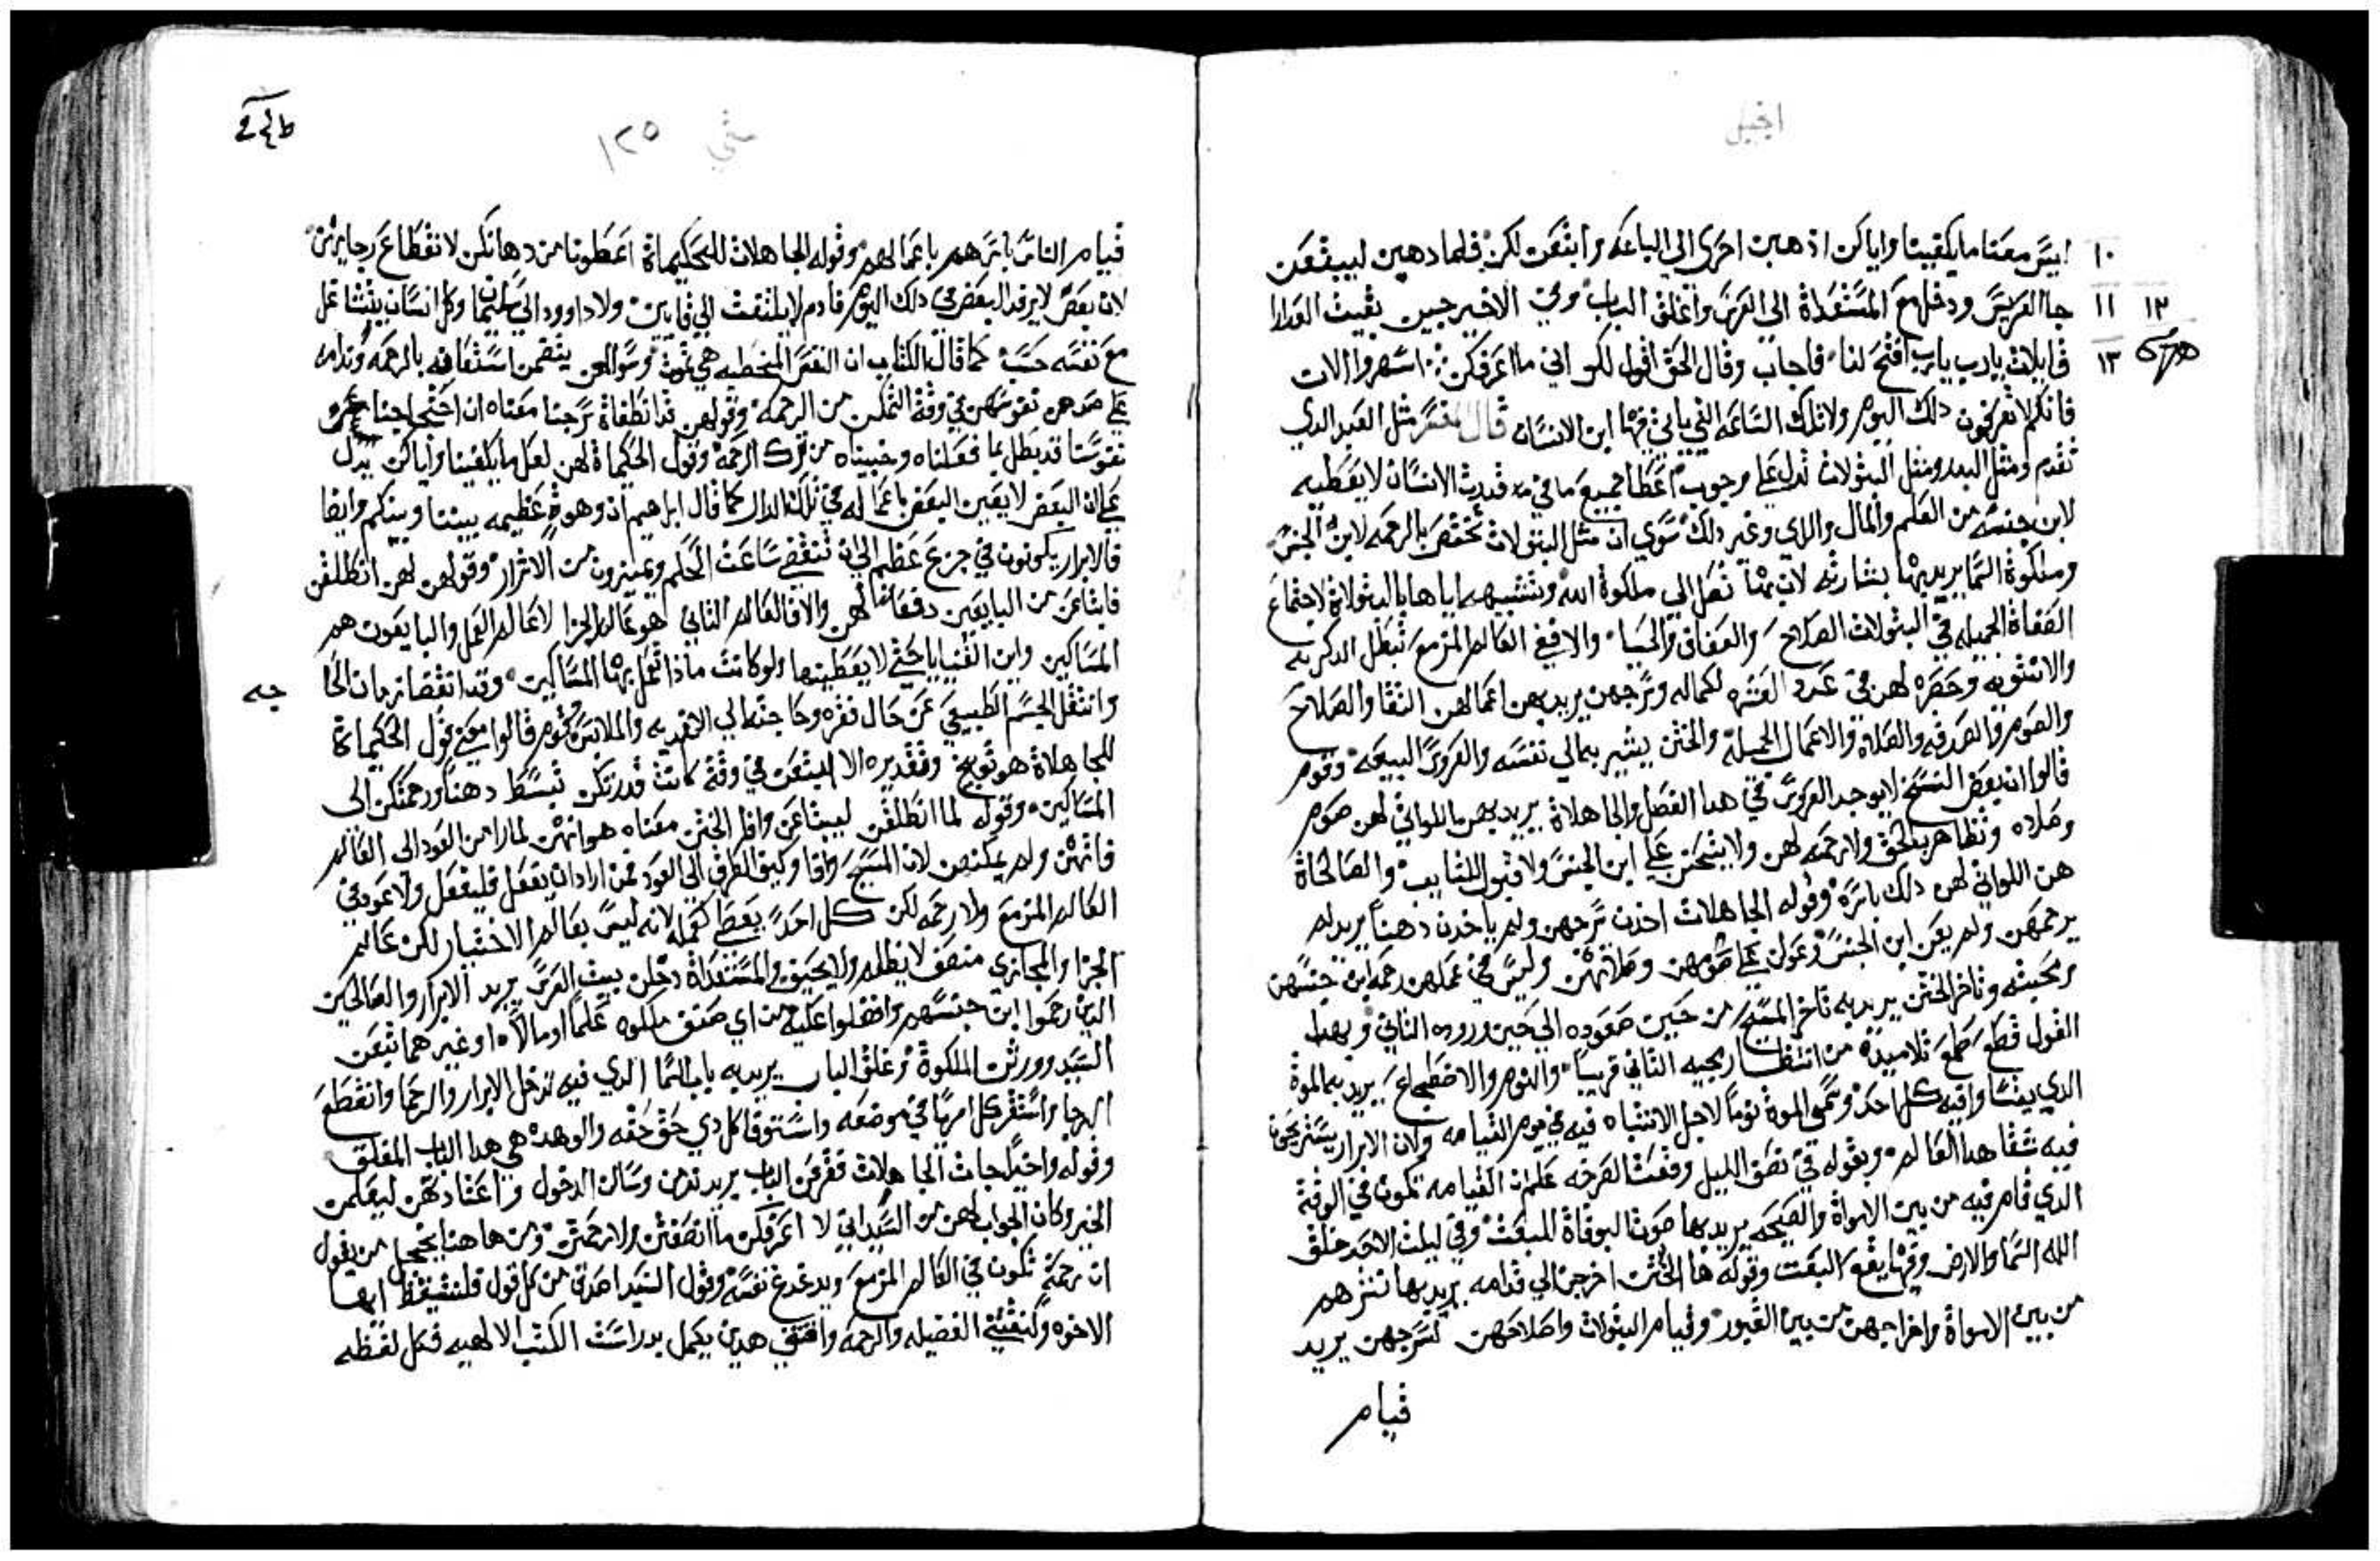 انجيل
١٠ ليس معنا ما يكفينا واياكن اذهبن احرى الى الباعه وابتعن لكن فلما دهبن ليبتعن
١٢ ١١ جا العريس ودخل مع المستعداة الى العرس واغلق الباب وفي الاخير جين بقيت العدارا
١٣ قايلات يارب يارب افتح لنا فاجاب وقال الحق اقول لكن اني ما اعرفكن اسهروا الان
فانكم لا تعرفون دلك اليوم ولا تلك الساعه التي ياتي فيها ابن الانسان قال المفسر مثل العبد الدي
تقدم ومثل البدر ومثل البتولات تدل على وجوب اعطا جميع ما في يد قدرت الانسان لا يعطيه
لابن جنسه من العلم والمال والراي وغير دلك سوي ان مثل البتولات تختص بالرحمه لابن الجنس
وملكوة السما يريد بها بشارته لان بها تصل الي ملكوة الله وتشبيهه اياها بالبتولاة لاجتماع
الصفاة الجميله في البتولات الصلاح والعفاف والحيا والا ففي العالم المزمع تبطل الدكريه
والانثويه وحصره لهن في عدد العشره لكماله وسرجهن يريد بهن اعمالهن النقا والصلاح
والصوم والصدقه والصلاة والاعمال الجميلة والختن يشير به الي نفسه والعروس البيعه وقوم
قالوا ان بعض النسخ لا يوجد العروس في هدا الفصل والجاهلاة يريد بهن اللواتي لهن صوم
وصلاه وتظاهر بالحق ولا رحمه لهن ولا يشحن على ابن الجنس ولا قبول للتايب والصالحاة
هن اللواتي لهن دلك باسره وقوله الجاهلات اخدن سرجهن ولم ياخدن دهنا يريد لم
يرحمهن ولم يعن ابن الجنس وعولن على صومهن وصلاتهن وليس في عملهن رحمه ابن جنسهن
ومحبته وتاخر الختن يريد به تاخر المسيح من حين صعوده الي حين وروده التاني وبهدا
القول قطع طمع تلاميده من انتظار مجيه التاني قريبا والنوم والاضطجاع يريد به الموة
الدي يتساوا فيه كل احد وسمى الموة نوما لاجل الانتباه فيه في يوم القيامه ولان الابرار يستريحون
فيه شقا هدا العالم وبقوله في نصف الليل وقعت الصرخه علم ان القيامه تكون في الوقت
الدي قام فيه من بين الامواة والصيحه يريد بها صوت البوقاة للبعت وفي ليلت الاحد خلق
الله السما والارض وفيها يقع البعت وقوله ها الختن اخرجن الي قدامه يريد بها تنشرهم
من بين الامواة واخراجهن من بين القبور وقيام البتولات واصلاحهن لسرجهن يريد
قيام
متي ١٢٥
قيام الناس باسرهم باعمالهم وقوله الجاهلات للحكيماة اعطونا من دهانكن لانقطاع رجايهن
لان بعض لا يرفد البعض في دلك اليوم فادم لا يلتفت الي قايين ولا داوود الي سليمان وكل انسان يتشاغل
مع نفسه حسب كما قال الكتاب ان النفس المخطيه هي تموت وسوالهن يتضمن استعافه بالرحمه وندامه
على هن نفوسهن في وقة التمكن من الرحمة وقولهن قد انطفاة سرجنا معناه ان احتجاجنا عن
نفوسنا قد بطل بما فعلناه وخبيناه من ترك الرحمة وقول الحكيماة لهن لعل ما يكفينا واياكن يدل
على ان البعض لا يعين البعض باعماله في تلك الدار كما قال ابراهيم ان وهوة عظيمه بيننا وبينكم وايضا
فالابرار يكونون في جزع عظيم الي ان تنقضي ساعت الحكم ويتميزون من الاشرار وقولهن لهن انطلقن
فابتاعن من البايعين دفعا لهن والا فالعالم التاني هو عالم الجزا لا عالم العمل والبايعون هم
المساكين واين القنيايا حتى لا يعطينها ولو كانت مادا تعمل بها المساكين وقد انقضا زمان الحا
جه
وانتقل الجسم الطبيعي عن حال فقره وحاجته الي الاغديه والملابس وقوم قالوا معنى قول الحكيماة
للجاهلاة هو توبيخ وتقديره الا ابتعن في وقة كانت قدرتكن تبسط دهنا ورحمتكن الى
المساكين وقوله لما انطلقن ليبتاعن وافا الختن معناه هو انهن لما رامن العود الى العالم
فاتهن ولم يمكنهن لان المسيح وافا وكيف الطرق الي العود فمن اراد ان يفعل فليفعل ولا عود في
العالم المزمع ولا رحمه لكن كل احد يعطا كعمله لانه ليس بعالم الاختبار لكن عالم
الجزا والمجازي منصف لا يظلم ولا يحيف والمستعداة دخلن بيت العرس يريد الابرار والصالحين
الدين رحموا ابن جنسهم وافضلوا عليه من اي صنف ملكوه علما او مالا او غيرهما تبعن
السيد وورتن الملكوة وغلق الباب يريد به باب السما الدي فيه تدخل الابرار والرحما وانقطع
الرجا واستقر كل امر بها في موضعه واستوفا كل دي حق حقه والوهدة هي هدا الباب المغلق
وقوله واخيرا جات الجاهلات تقرعن الباب يريد ندمن وسالن الدخول واعتادتهن ليعلمن
الخير وكان الجواب لهن من السيد اني لا اعرفكن ما انصفتن ولا رحمتن ومن ها هنا يخجل من يقول
ان رحمة تكون في العالم المزمع ويدغدغ نفسه وقول السيد اصدق من كل قول فلنتيقظ ايها
الاخوه ولنقتني الفضيله والرحمه واقتني هدين يكمل بدراست الكتب الالهيه فكل لفظه